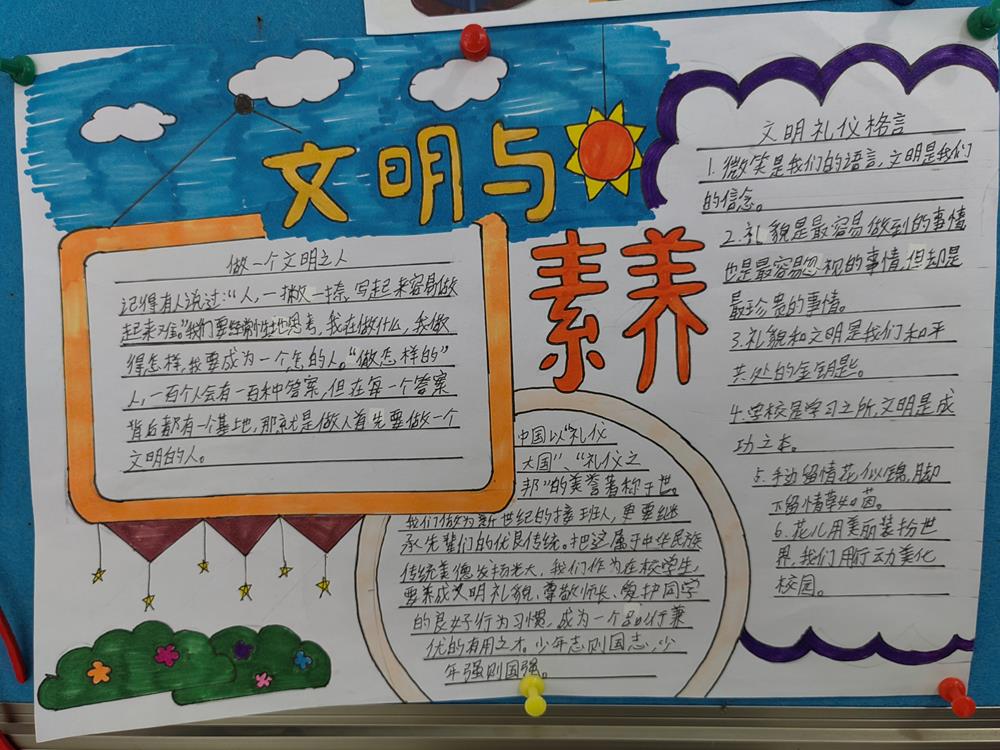 文明与
素养
做一个文明之人
记得有人说过:“人,一撇一捺,写起来容易做
起来难。”我们要经常性地思考,我在做什么,我做
得怎样,我要成为一个怎的人。“做怎样的”
人,一百个人会有一百种答案,但在每一个答案
背后都有一个基地,那就是做人首先要做一个
文明的人。
中国以“礼仪
大国”、“礼仪之
邦”的美誉著称于世。
我们做为新世纪的接班人,更要继
承先辈们的优良传统。把这属于中华民族
传统美德发扬光大,我们作为在校学生
要养成文明礼貌、尊敬师长、爱护同学
的良好行为习惯,成为一个品行兼
优的有用之才。少年志则国志,少
年强则国强。
文明礼仪格言
1.微笑是我们的语言,文明是我们
的信念。
2.礼貌是最容易做到的事情
也是最容易忽视的事情,但却是
最珍贵的事情。
3.礼貌和文明是我们和平
共处的金钥匙。
4.学校是学习之所,文明是成
功之本。
5.手边留情花似锦,脚
下留情草如茵。
6.花儿用美丽装扮世
界,我们用行动美化
校园。